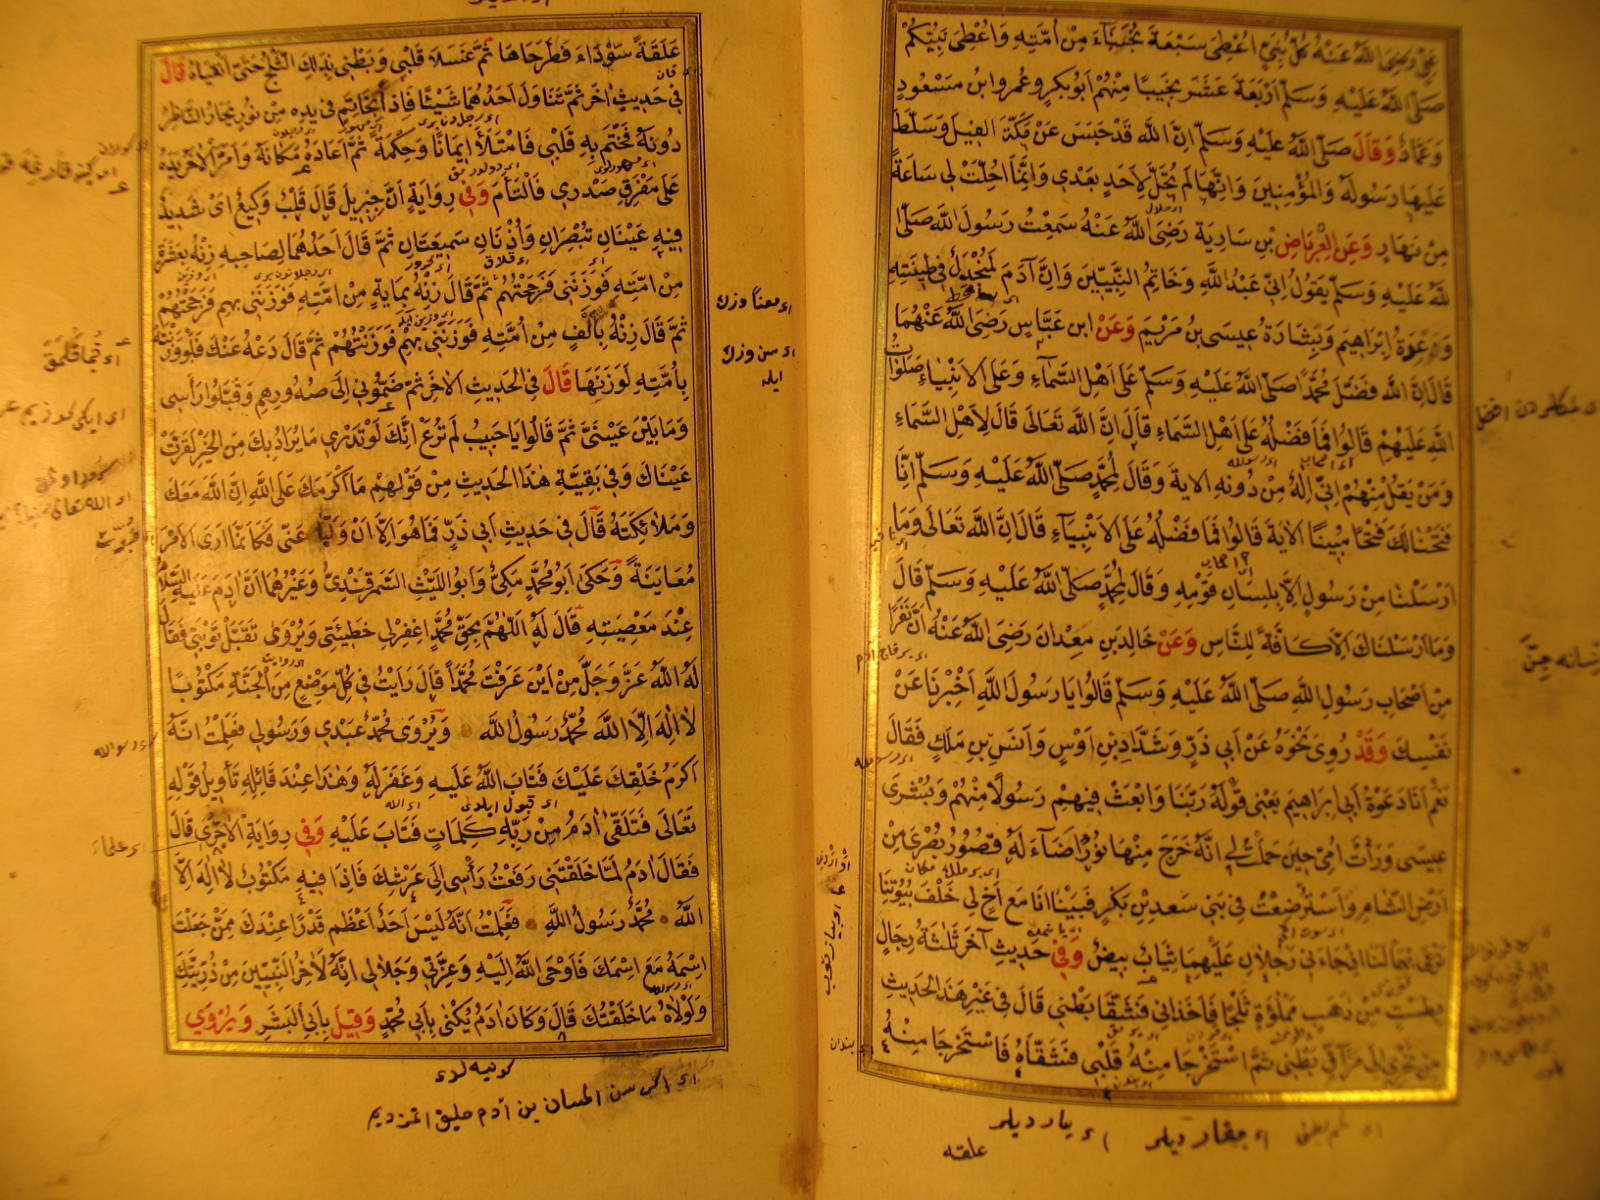 علي رضي الله عنه كل نبي اعطى سبعة نجباء من امته واعطى نبيكم
صلى الله عليه وسلم اربعة عشر نجيبا منهم ابو بكر وعمر وابن مسعود
وعمار وقال صلى الله عليه وسلم ان الله قد حبس عن مكة الفيل وسلط
عليها رسوله والمؤمنين وانها لم تحل لاحد بعدي وانما احلت لي ساعة
من نهار وعن العرباض بن سارية رضي الله عنه سمعت رسول الله صلى
الله عليه وسلم يقول اني عبد الله وخاتم النبيين وان آدم لمنجدل في طينته
ودعوة ابراهيم وبشارة عيسى بن مريم وعن ابن عباس رضي الله عنهما
قال ان الله فضل محمدا صلى الله عليه وسلم على اهل السماء وعلى الانبياء صلوات
الله عليهم قالوا فما فضله على اهل السماء قال ان الله تعالى قال لاهل السماء
ومن يقل منهم اني اله من دونه الاية وقال لمحمد صلى الله عليه وسلم انا
فتحنا لك فتحا مبينا الاية قالوا فما فضله على الانبياء قال ان الله تعالى وما
ارسلنا من رسول الا بلسان قومه وقال لمحمد صلى الله عليه وسلم قال
وما ارسلناك الا كافة للناس وعن خالد بن معدان رضي الله عنه ان نفرا
من اصحاب رسول الله صلى الله عليه وسلم قالوا يا رسول الله اخبرنا عن
نفسك وقد روي نحوه عن ابي ذر وشداد بن اوس وانس بن ملك فقال
نعم انا دعوة ابي ابراهيم يعني قوله ربنا وابعث فيهم رسولا منهم وبشرى
عيسى ورأت امي حين حملت بي انه خرج منها نور اضاء له قصور بصرى من
ارض الشام واسترضعت في بني سعد بن بكر فبينا انا مع اخ لي خلف بيوتنا
نرعى بهما لنا اذ جاءني رجلان عليهما ثياب بيض وفي حديث آخر ثلثة رجال
بطست من ذهب مملؤة ثلجا فاخذاني فشقا بطني قال في غير هذا الحديث
من نحري الى مراق بطني ثم استخرجا منه قلبي فشقاه فاستخرجا منه
علقة
علقة سوداء فطرحاها ثم غسلا قلبي وبطني بذلك الثلج حتى انقياه قال
في حديث اخر ثم تناول احدهما شيئا فاذا بخاتم في يده من نور يحار الناظر
دونه فختم به قلبي فامتلأ ايمانا وحكمة ثم اعاده مكانه وامر الاخر يده
على مفرق صدري فالتأم وفي رواية ان جبريل قال قلب وكيع اي شديد
فيه عينان تبصران واذنان سميعتان ثم قال احدهما لصاحبه زنه بعشرة
من امته فوزنني فرجحتهم ثم قال زنه بماية من امته فوزنني بهم فرجحتهم
ثم قال زنه بالف من امته فوزنني بهم فوزنتهم ثم قال دعه عنك فلو وزنته
بامته لوزنها قال في الحديث الاخر ثم ضموني الى صدورهم وقبلوا رأسى
وما بين عيني ثم قالوا يا حبيب لم ترع انك لو تدري ما يراد بك من الخير لقرت
عيناك وفي بقية هذا الحديث من قولهم ما اكرمك على الله ان الله معك
وملائكته قال في حديث ابي ذر فما هو الا ان وليا عني فكانما ارى الامر
معاينة وحكى ابو محمد مكي وابو الليث السمرقندي وغيرهما ان ادم عليه السلام
عند معصيته قال له اللهم بحق محمد اغفر لي خطيئتي ويروى تقبل توبتي فقال
له الله عز وجل من اين عرفت محمدا قال رايت في كل موضع من الجنة مكتوبا
لا اله الا الله محمد رسول الله ويروى محمد عبدي ورسولي فعلمت انه
اكرم خلقك عليك فتاب الله عليه وغفر له وهذا عند قائله تأويل قوله
تعالى فتلقى ادم من ربه كلمات فتاب عليه وفي رواية الاخرى قال
فقال ادم لما خلقتني رفعت رأسى الى عرشك فاذا فيه مكتوب لا اله الا
الله محمد رسول الله فعلمت انه ليس احد اعظم قدرا عندك ممن جعلت
اسمه مع اسمك فاوحى الله اليه وعزتي وجلالي انه لاخر النبيين من ذريتك
ولولاه ما خلقتك قال وكان ادم يكنى بابي محمد وقيل بابي البشر ويروى